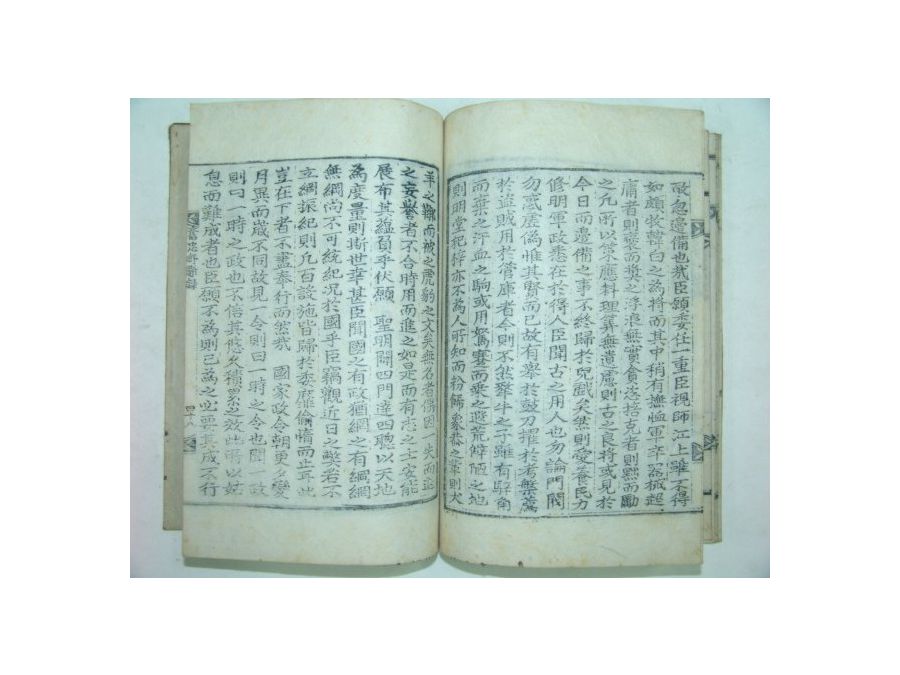 敢忽邊備也哉臣願委任一重臣視師江上雖不得
如頗牧韓白之爲將而其中稍有撫恤軍卒器械超
庸者則褒而奬之浮浪無實貪恣掊克者則黜而勵
之凡所以策應料理算無遺慮則古之良將或見於
今日而邊備之事不終歸於兒戲矣然則愛養民力
修明軍政悉在於得人臣聞古之用人也勿論門閥
勿惑虛僞惟其賢而已故有擧於鼓刀擢於耆
於盜賊用於管庫者今則不然犂牛之子雖有騂角
而棄之汗血之駒或用駑蹇而乘之遐荒僻陋之地
則明堂杞梓亦不爲人所知而粉餙象恭之輩則犬
羊之鞹而被之虎豹之文矣無名者傷因一失而
之妄譽者不合時用而進之如是而有志之士安能
展布其蘊負乎伏願 聖明闢四門達四聰以天地
爲度量則斯世幸甚臣聞國之有政猶網之有綱網
無綱尚不可統紀况於國乎臣竊觀近日之弊若不
立綱振紀則凡百設施皆歸於委靡偷惰而止耳此
豈在下者不盡奉行而然哉 國家政令朝更夕變
月異而歲不同故見一令則曰一時之令也聞一政
則曰一時之政也不偣其悠久積累之效此所以姑
息而難成者也臣願不爲則已爲之必要其成不行
四十八